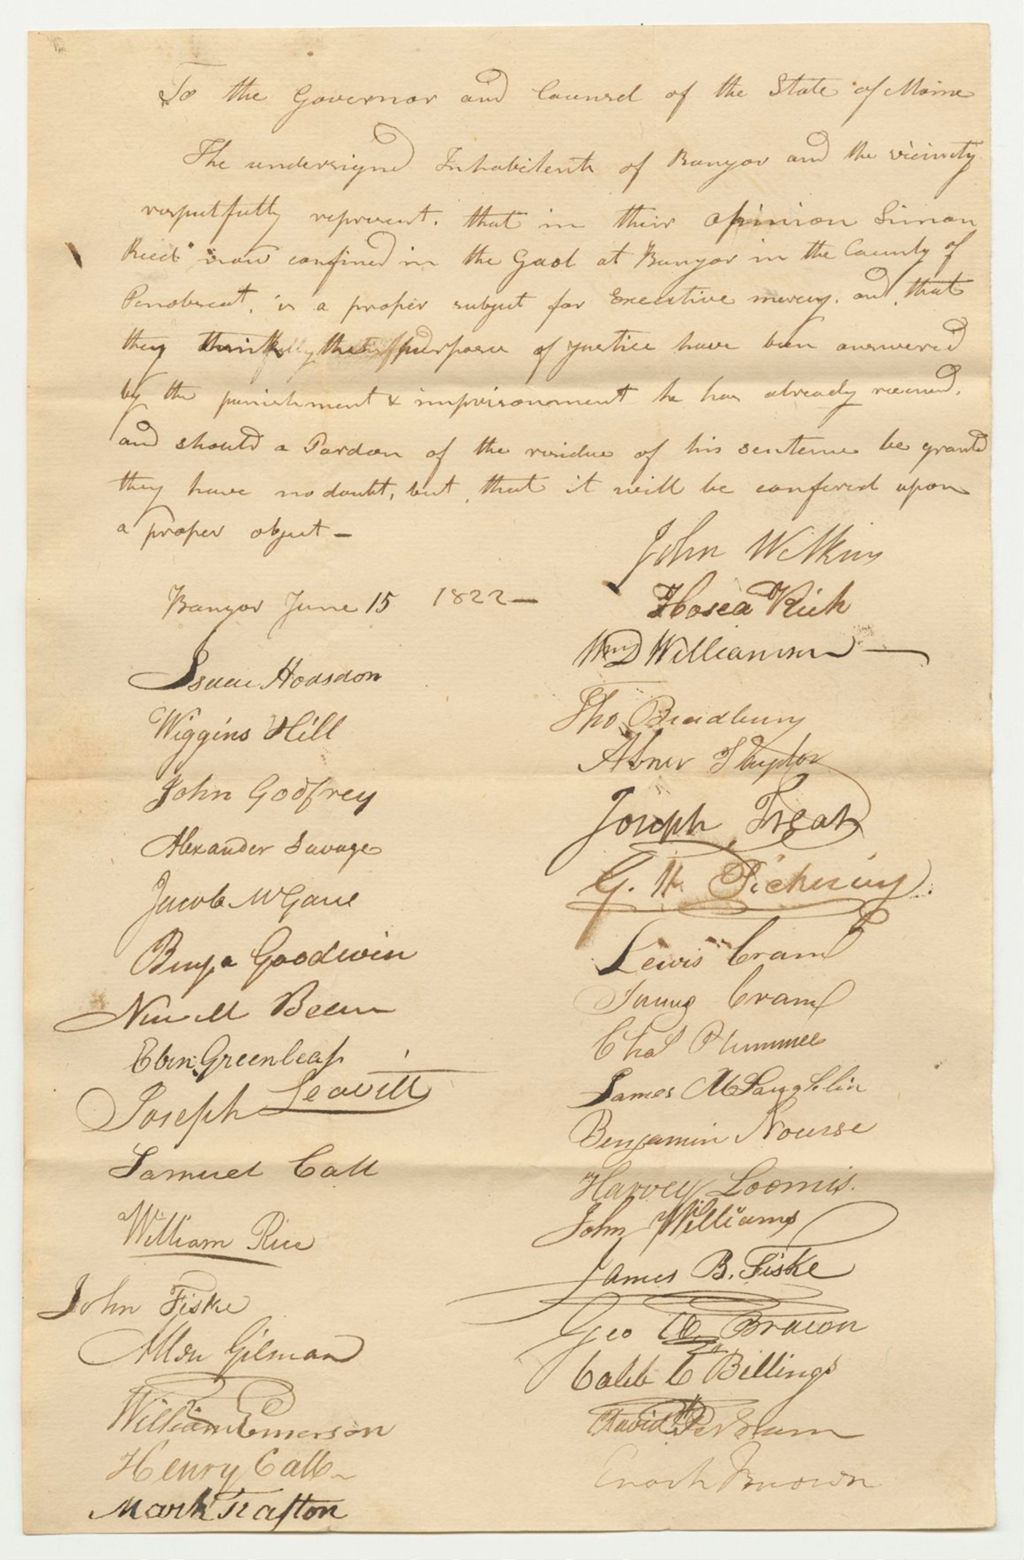 To the Governor and Counsel of the State of Maine
The undersigned Inhabitents of Bangor and the vicinity
respectfully represent. that in their opinion Simon
now confined in the Gaol at Bangor in the County of
Penobscot, is a proper subject for Executive mercy. and that
they think the purposes of justice have been answered
by the punishment & imprisonment he has already received,
and should a Pardon of the residue of his sentence be grantd
they have no doubt, but that it will be confered upon
a proper object —
Bangor June 15 1822 —
John Wilkins
Hosea Rich
Wm D Williamson
Tho Bradbury
Abner Taylor
Joseph Treat
G. W. Pickering
Lewis Cram
Cram
Chas Plummer
James McLaughlin
Benjamin Nourse
Harvey Loomis.
John Williams
James B. Fiske
Geo W Brown
Caleb C Billings
David Perham
Enoch Brown
Isaac Hodsdon
Wiggins Hill
John Godfrey
Alexander Savage
Jacob McGaw
Benja Goodwin
Newell Bean
Eben Greenleaf
Joseph Leavitt
Samuel Call
William Rice
John Fiske
Allen Gilman
William Emerson
Henry Call
Mark Trafton